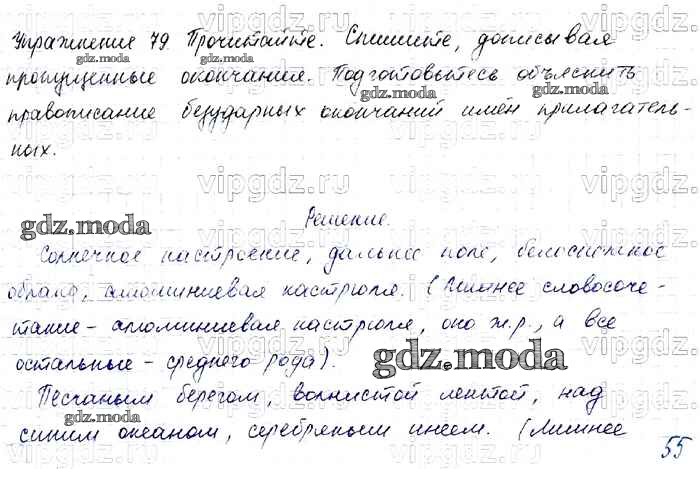 Упражнение 79. Прочитайте. Спишите, дописывая
пропущенные окончания. Подготовьтесь объяснить
правописание безударных окончаний имён прилагатель-
ных.
Решение.
Солнечное настроение, дальнее поле, белоснежное
облако, алюминиевая кастрюля. (Лишнее словосоче-
тание - алюминиевая кастрюля, оно ж.р., а все
остальные - среднего рода).
Песчаным берегом, волнистой лентой, над
синим океаном, серебряным инеем. (Лишнее
55
gdz.moda
vipgdz.ru